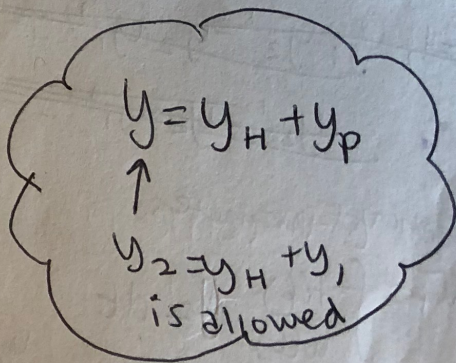 y = y_H + y_p
↑
y_2 = y_H + y_1
is allowed